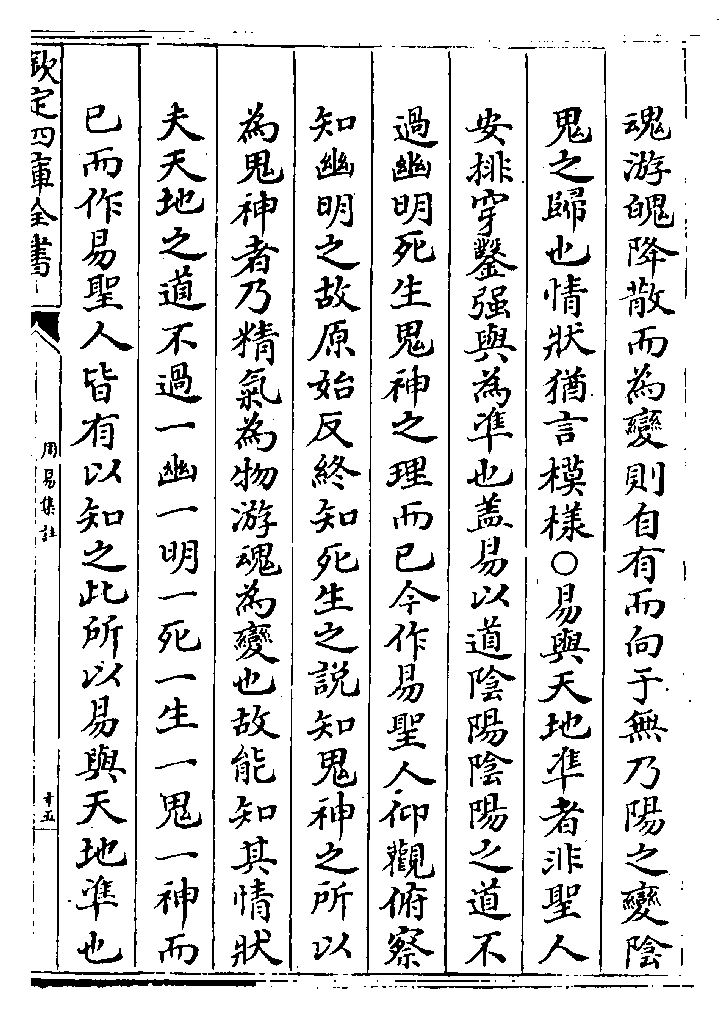 魂游魄降散而為變則自有而向于無乃陽之變陰
鬼之歸也情狀猶言模様○易與天地準者非聖人
安排穿鑿强與為準也蓋易以道陰陽陰陽之道不
過幽明死生鬼神之理而已今作易聖人仰觀俯察
知幽明之故原始反終知死生之説知鬼神之所以
為鬼神者乃精氣為物游魂為變也故能知其情狀
夫天地之道不過一幽一明一死一生一鬼一神而
已而作易聖人皆有以知之此所以易與天地準也
欽定四庫全書
周易集註
十五